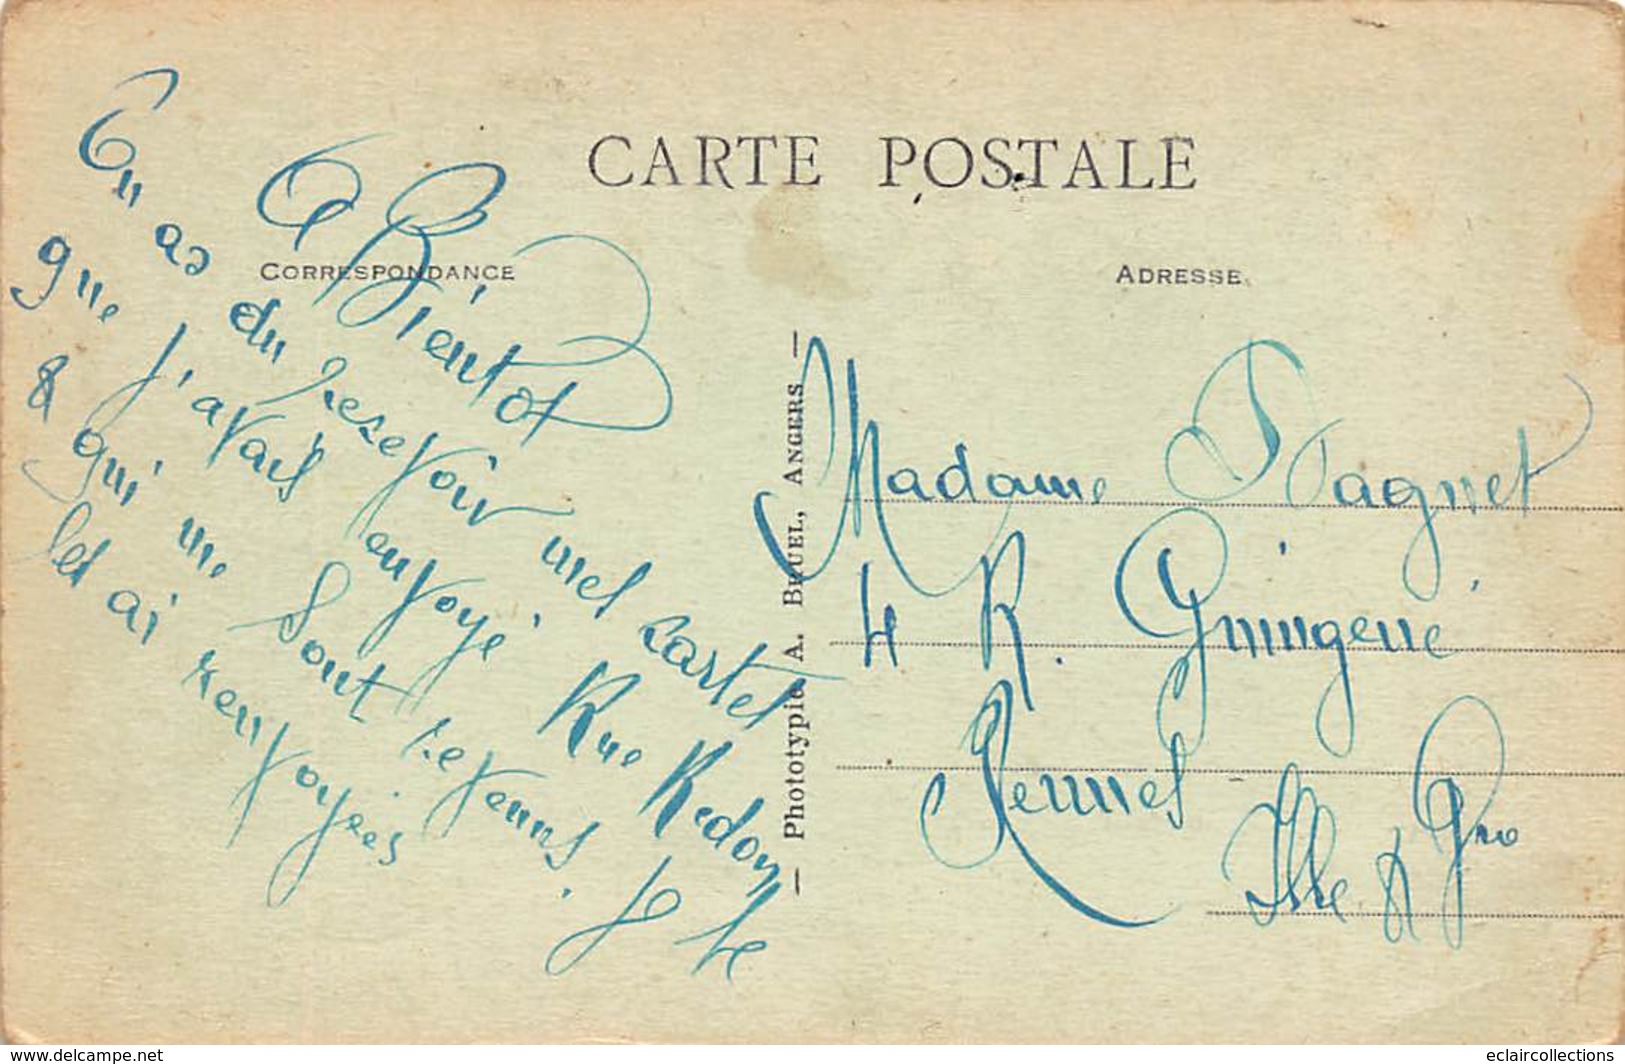 CARTE POSTALE
CORRESPONDANCE
ADRESSE
A Bientot
Tu as du recevoir mes cartes
que j'avais envoyé Rue Redon
& qui me sont revenus. Je te
les ai renvoyées
— Phototypie A. BRUEL, ANGERS —
Madame Pagnet
4 R. Guinguené
Rennes
Ille &
www.delcampe.net
eclaircollections